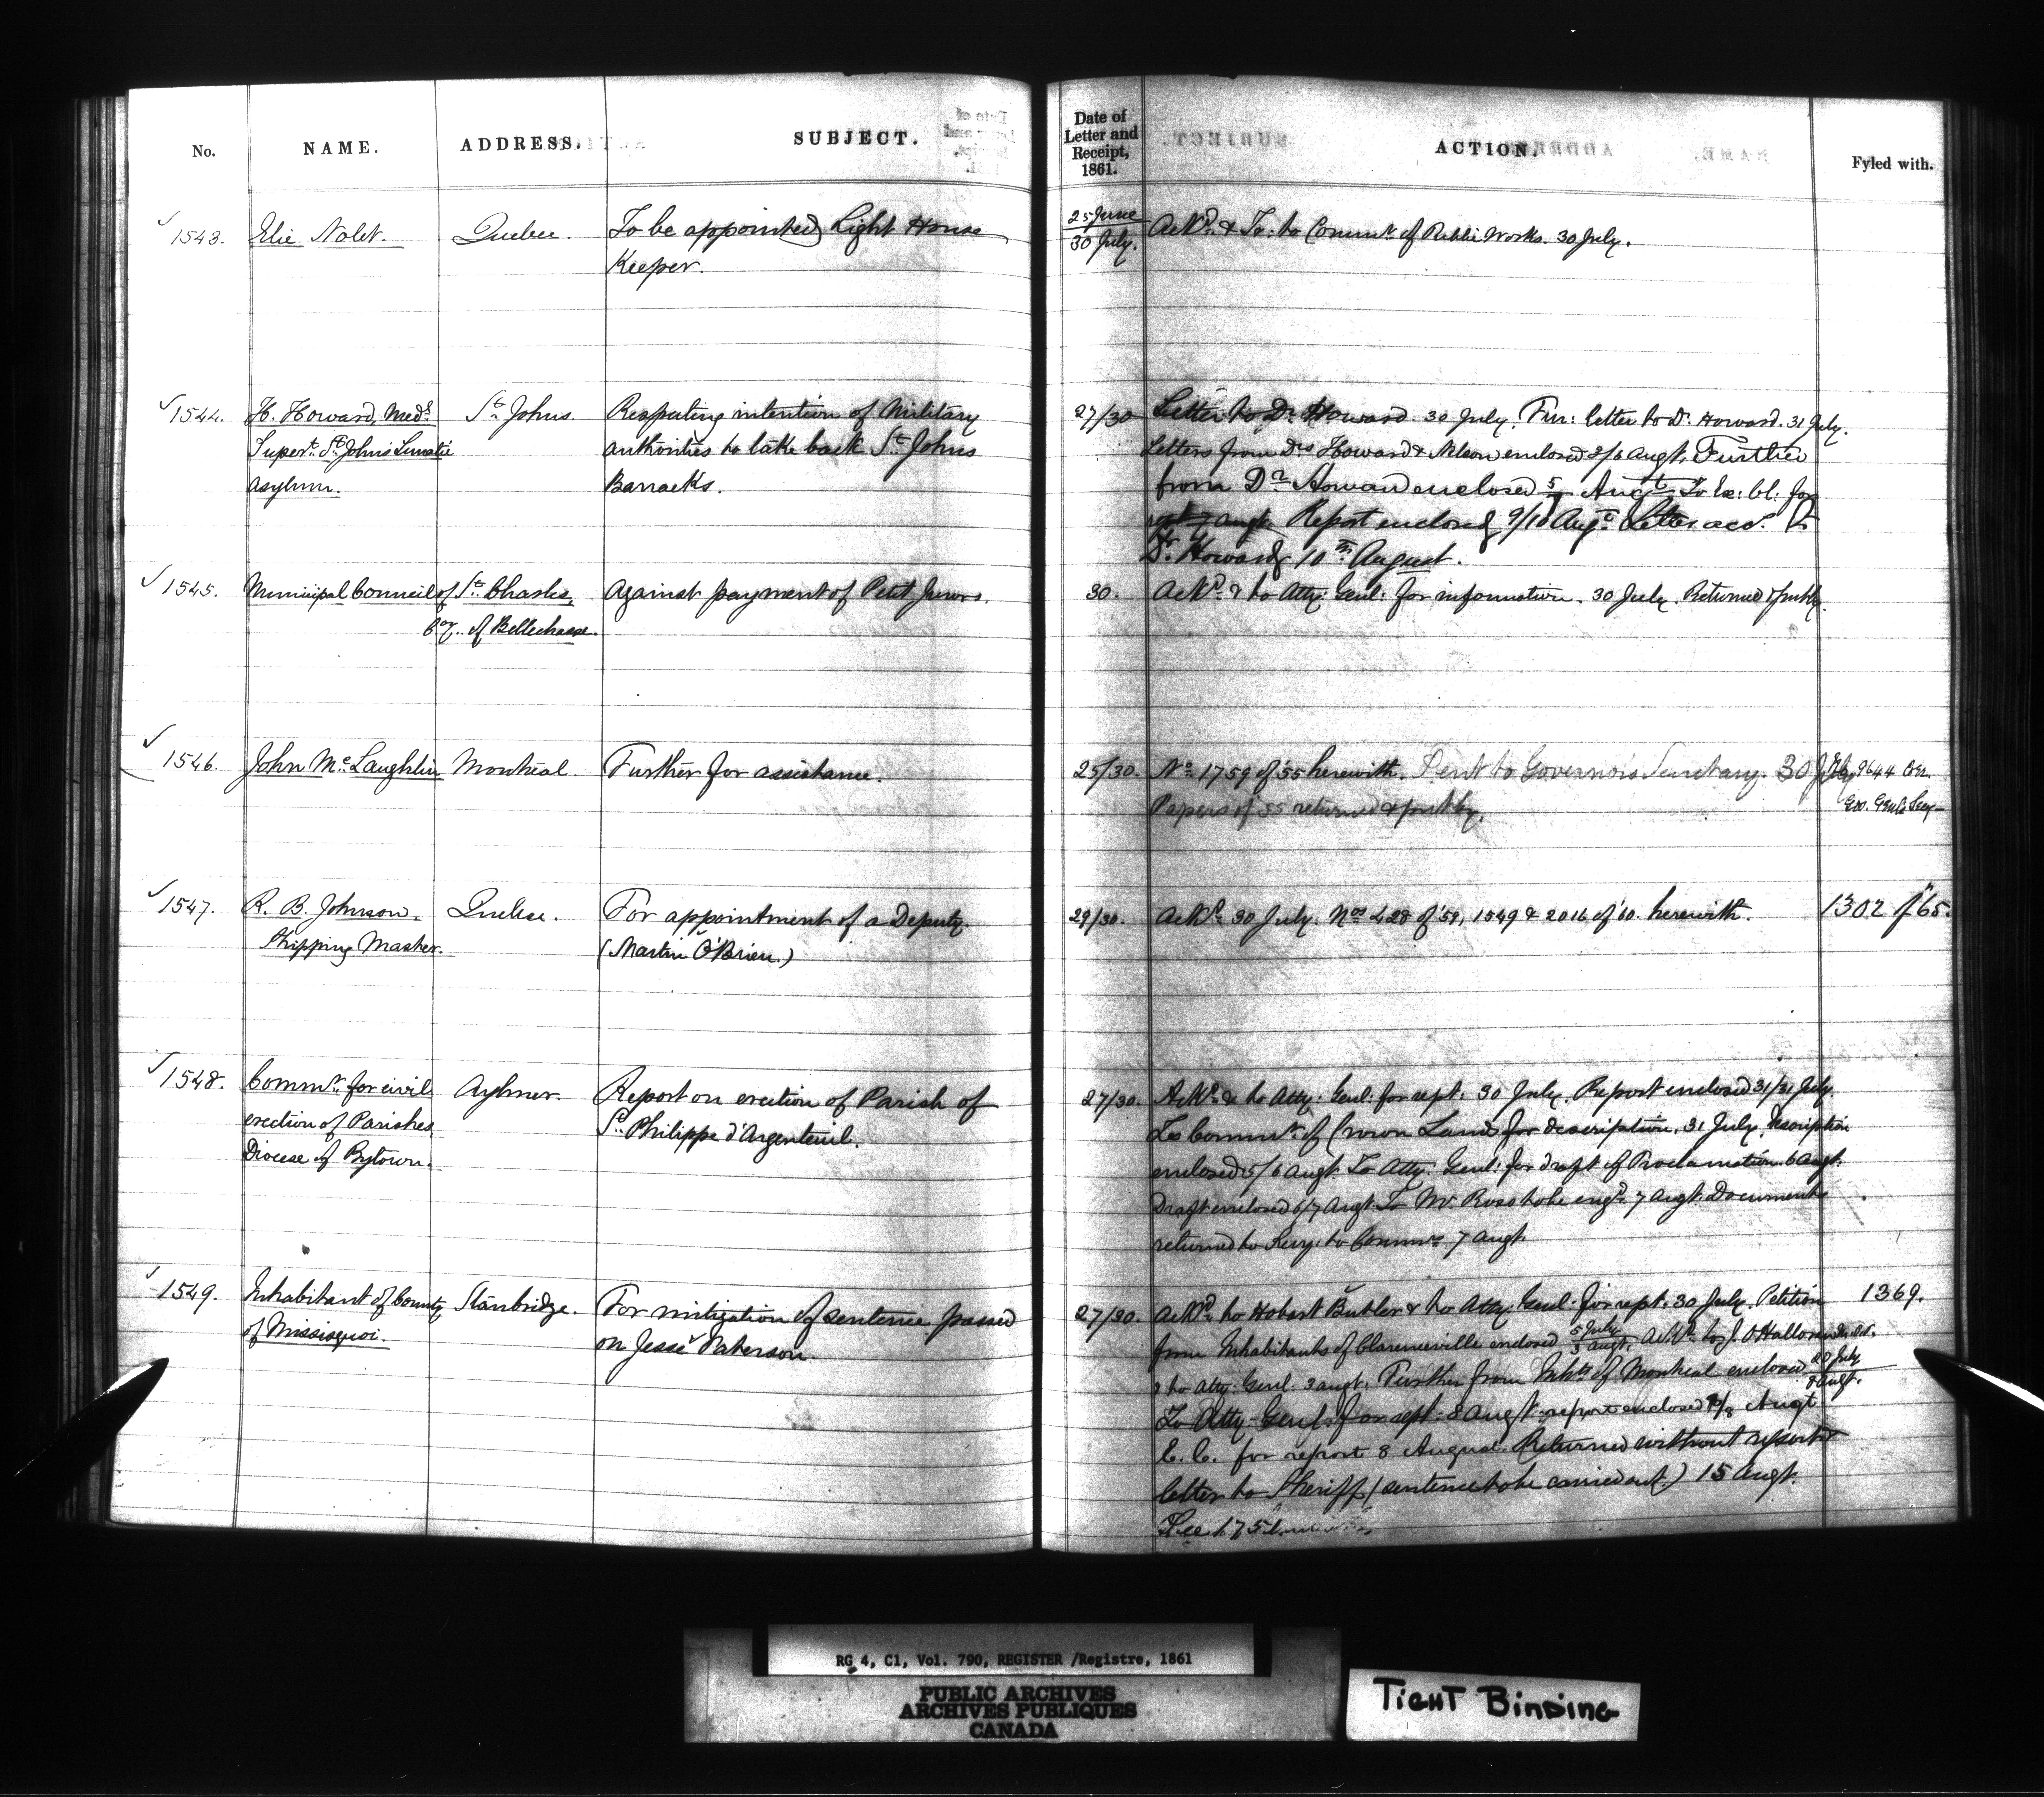 No. NAME. ADDRESS. SUBJECT. Date of Letter and Receipt, 1861. ACTION. Fyled with.
1543. Elie Nolet. Quebec. To be appointed Light House 25 June / 30 July. Ackd. & To: to Commr. of Public Works. 30 July.
Keeper.
1544. H. Howard, Medl. St. Johns. Respecting intention of Military 27/30 Letter to Dr. Howard. 30 July. Fur: letter to Dr. Howard. 31 July.
Supert. St. Johns Lunatic authorities to take back St. Johns Letters from Drs Howard & Nelson enclosed 2/6 Augt. Further
Asylum. Barracks. from Dr. Howard enclosed 5/7 Augt. To Ex: Cl: for
rept 7 augt. Report enclosed 9/10 Augt. Letter acc. to
Dr. Howard 10th August.
1545. Municipal Council of St. Charles, Against payment of Petit Jurors. 30. Ackd. & to Atty: Genl: for information. 30 July. Returned & put by.
Coy. of Bellechasse.
1546. John McLaughlin Montreal. Further for assistance. 25/30. No. 1759 of 55 herewith. Sent to Governor's Secretary. 30 July 9644
Papers of 55 returned & put by. Gov. Genl's Secy
1547. R. B. Johnson, Quebec. For appointment of a Deputy. 29/30. Ackd. 30 July. Nos 428 of '59, 1549 & 2016 of '60. herewith. 1302 of '65.
Shipping Master. (Martin O'Brien.)
1548. Commrs. for civil Aylmer. Report on erection of Parish of 27/30. Ackd. & to Atty: Genl: for rept. 30 July. Report enclosed 31/31 July.
erection of Parishes St. Philippe d'Argenteuil. To Commr. of Crown Lands for description, 31 July. Description
Diocese of Bytown. enclosed 5/6 augt. To Atty: Genl: for draft of Proclamation 6 augt.
Draft enclosed 6/7 Augt. To Mr. Ross to be engd. 7 Augt. Documents
returned to Secy: to Commrs. 7 Augt.
1549. Inhabitant of County Stanbridge. For mitigation of sentence passed 27/30. Ackd. to Hobart Butler & to Atty: Genl: for rept. 30 July. Petition 1369.
of Missisquoi. on Jesse Paterson. from Inhabitants of Clarenceville enclosed 5 July / 3 augt. Ackd. to J. O'Halloran
& to Atty: Genl: 3 augt. Further from Inhts of Montreal enclosed 20 July / 8 augt.
To Atty: Genl: for rept: 8 augt. report enclosed 8/8 Augt
E. C. for report 8 August. Returned without report &
letter to Sheriff (sentence to be carried out.) 15 Augt.
See 1751
RG 4, C1, Vol. 790, REGISTER /Registre, 1861
PUBLIC ARCHIVES
ARCHIVES PUBLIQUES
CANADA
TIGHT BINDING